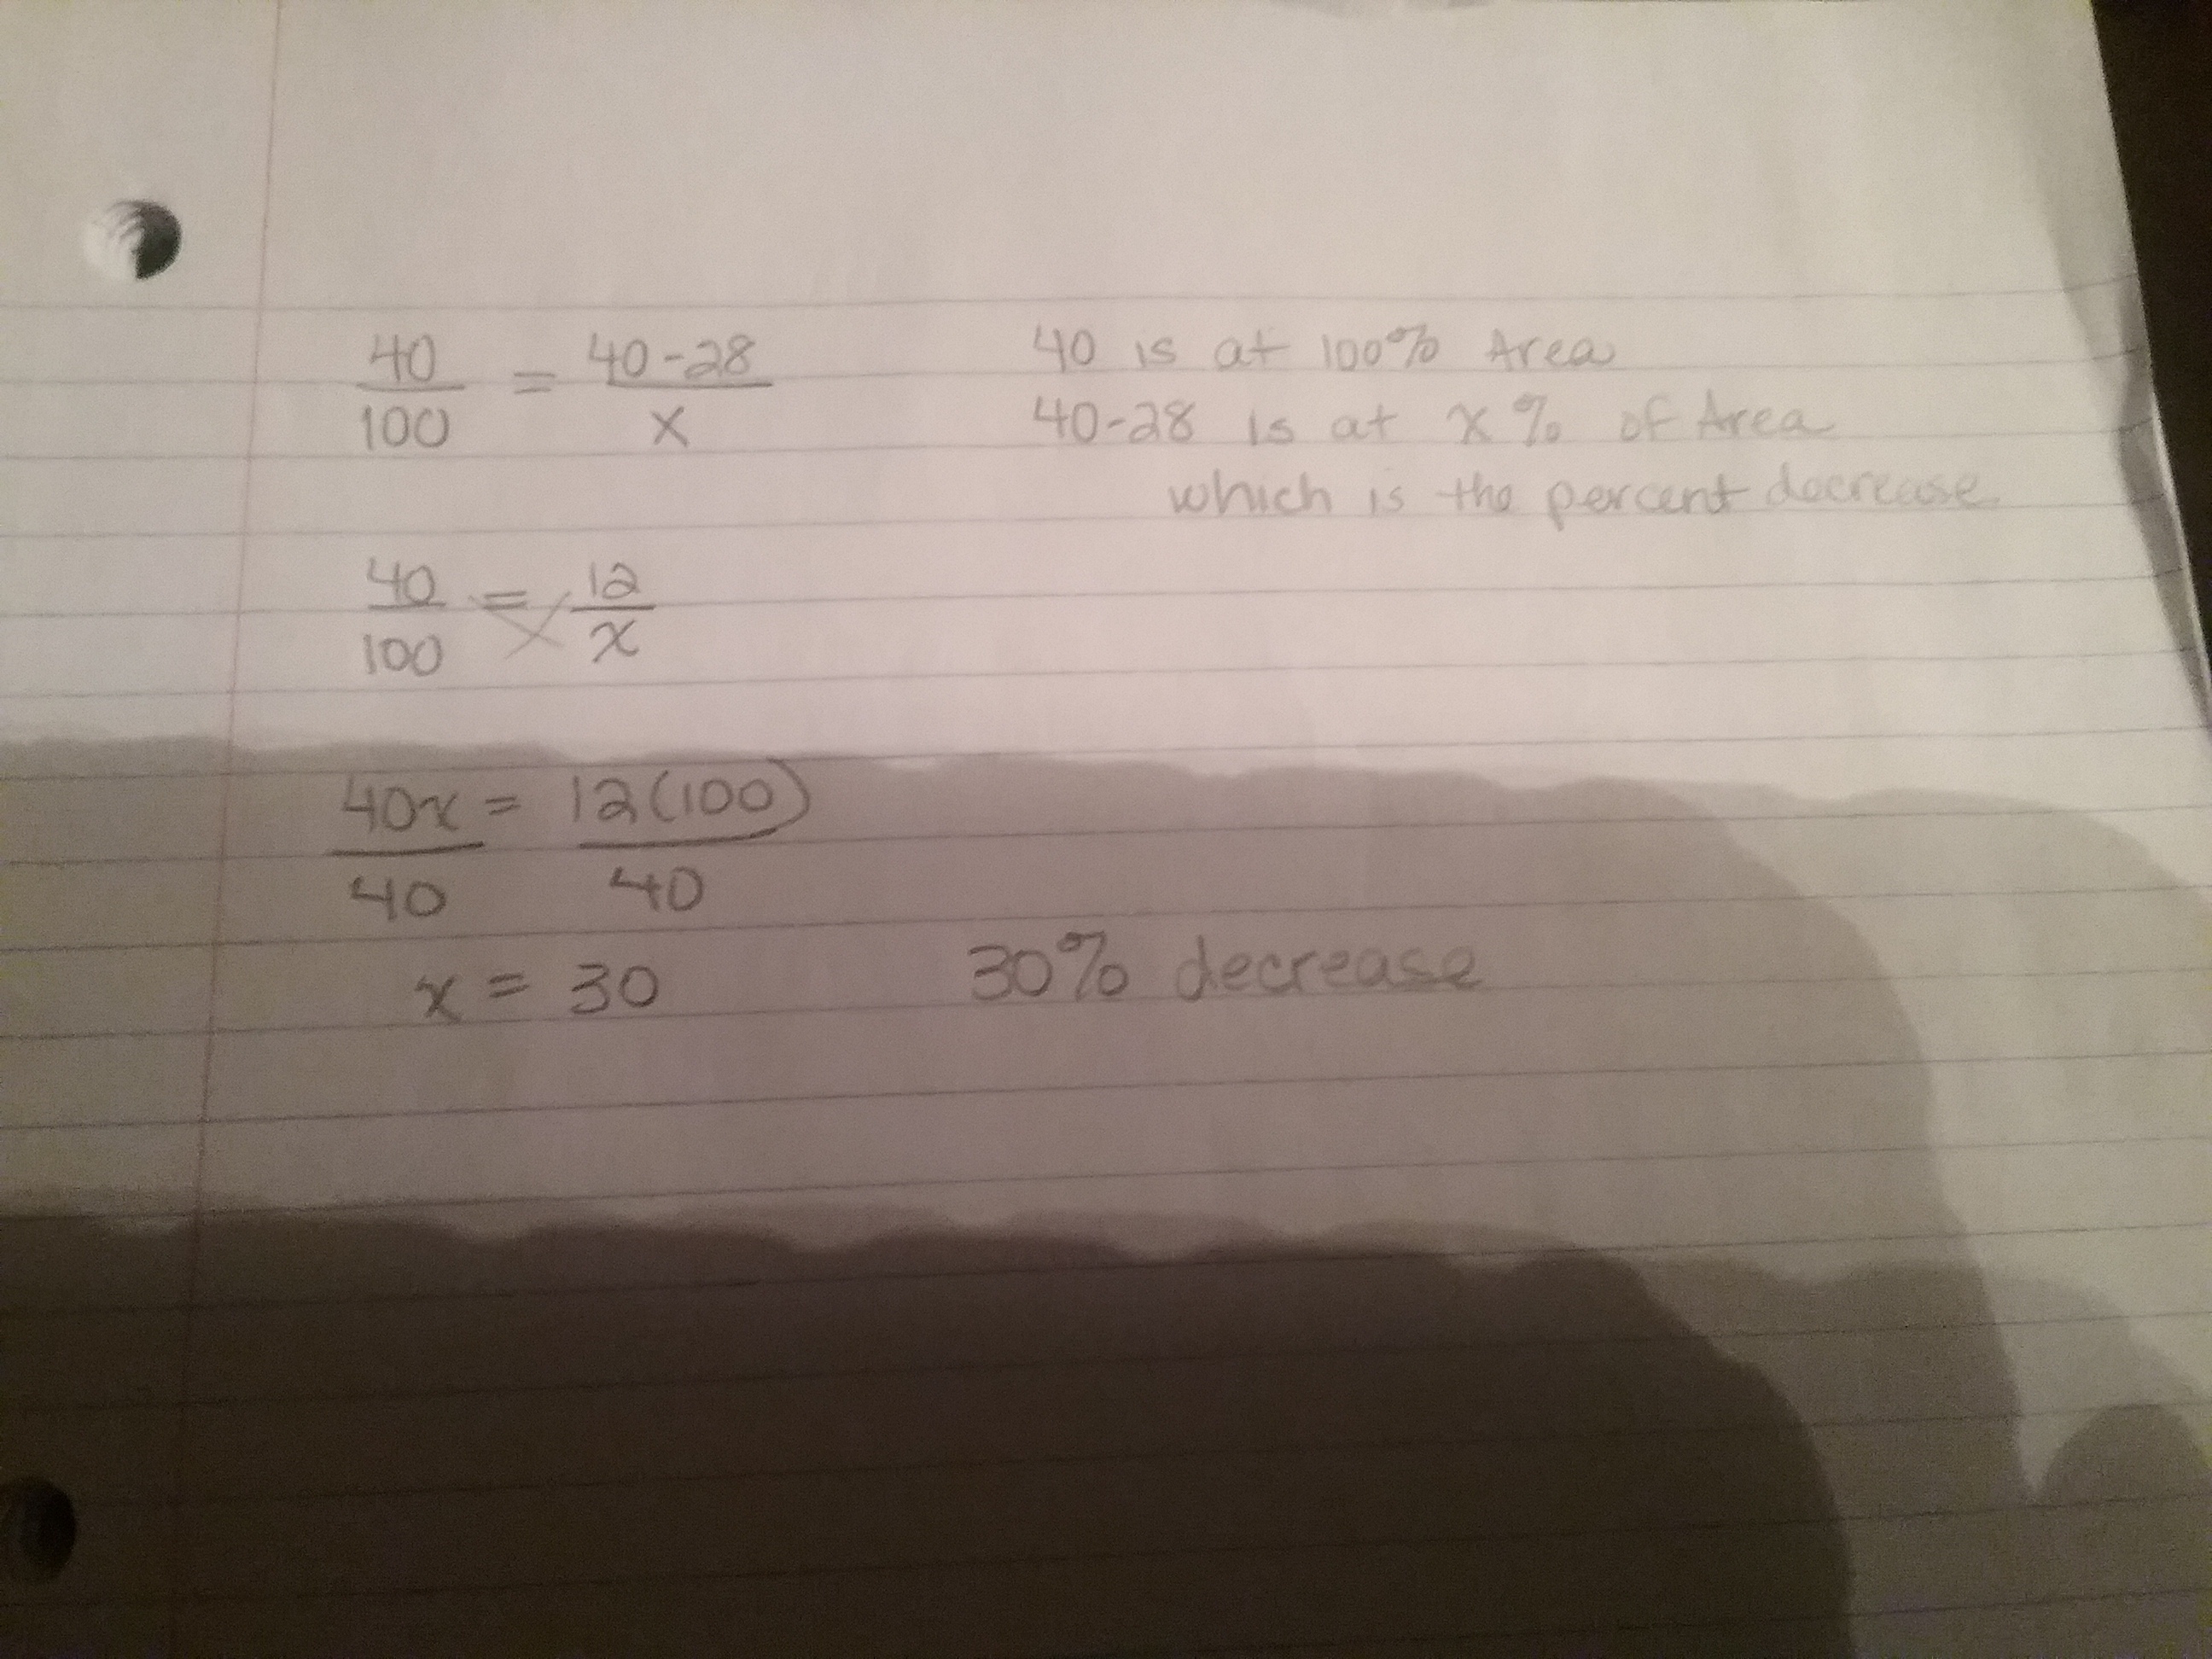 40/100 = 40-28/x
40 is at 100% Area
40-28 is at x% of Area
which is the percent decrease
40/100 = 12/x
40x/40 = 12(100)/40
x = 30
30% decrease